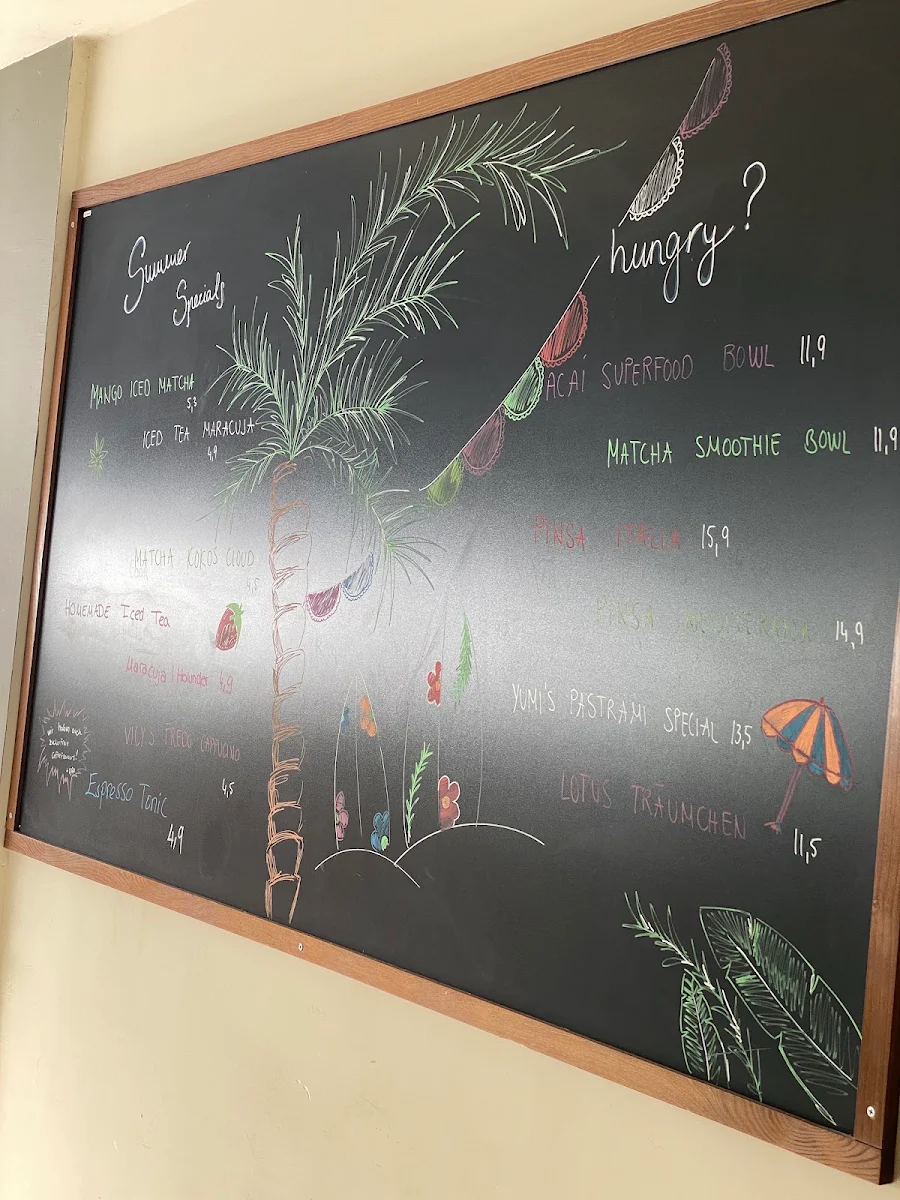 Summer
Specials
MANGO ICED MATCHA
5,3
ICED TEA MARACUJA
4,9
MATCHA KOKOS CLOUD
4,5
HOMEMADE Iced Tea
Maracuja | Holunder 4,9
VILY'S FREDO CAPPUCINO
4,5
Espresso Tonic
4,9
wir haben auch
hungry?
ACAÍ SUPERFOOD BOWL 11,9
MATCHA SMOOTHIE BOWL 11,9
PINSA ITALIA 15,9
PINSA 14,9
YUMI'S PASTRAMI SPECIAL 13,5
LOTUS TRÄUMCHEN
11,5